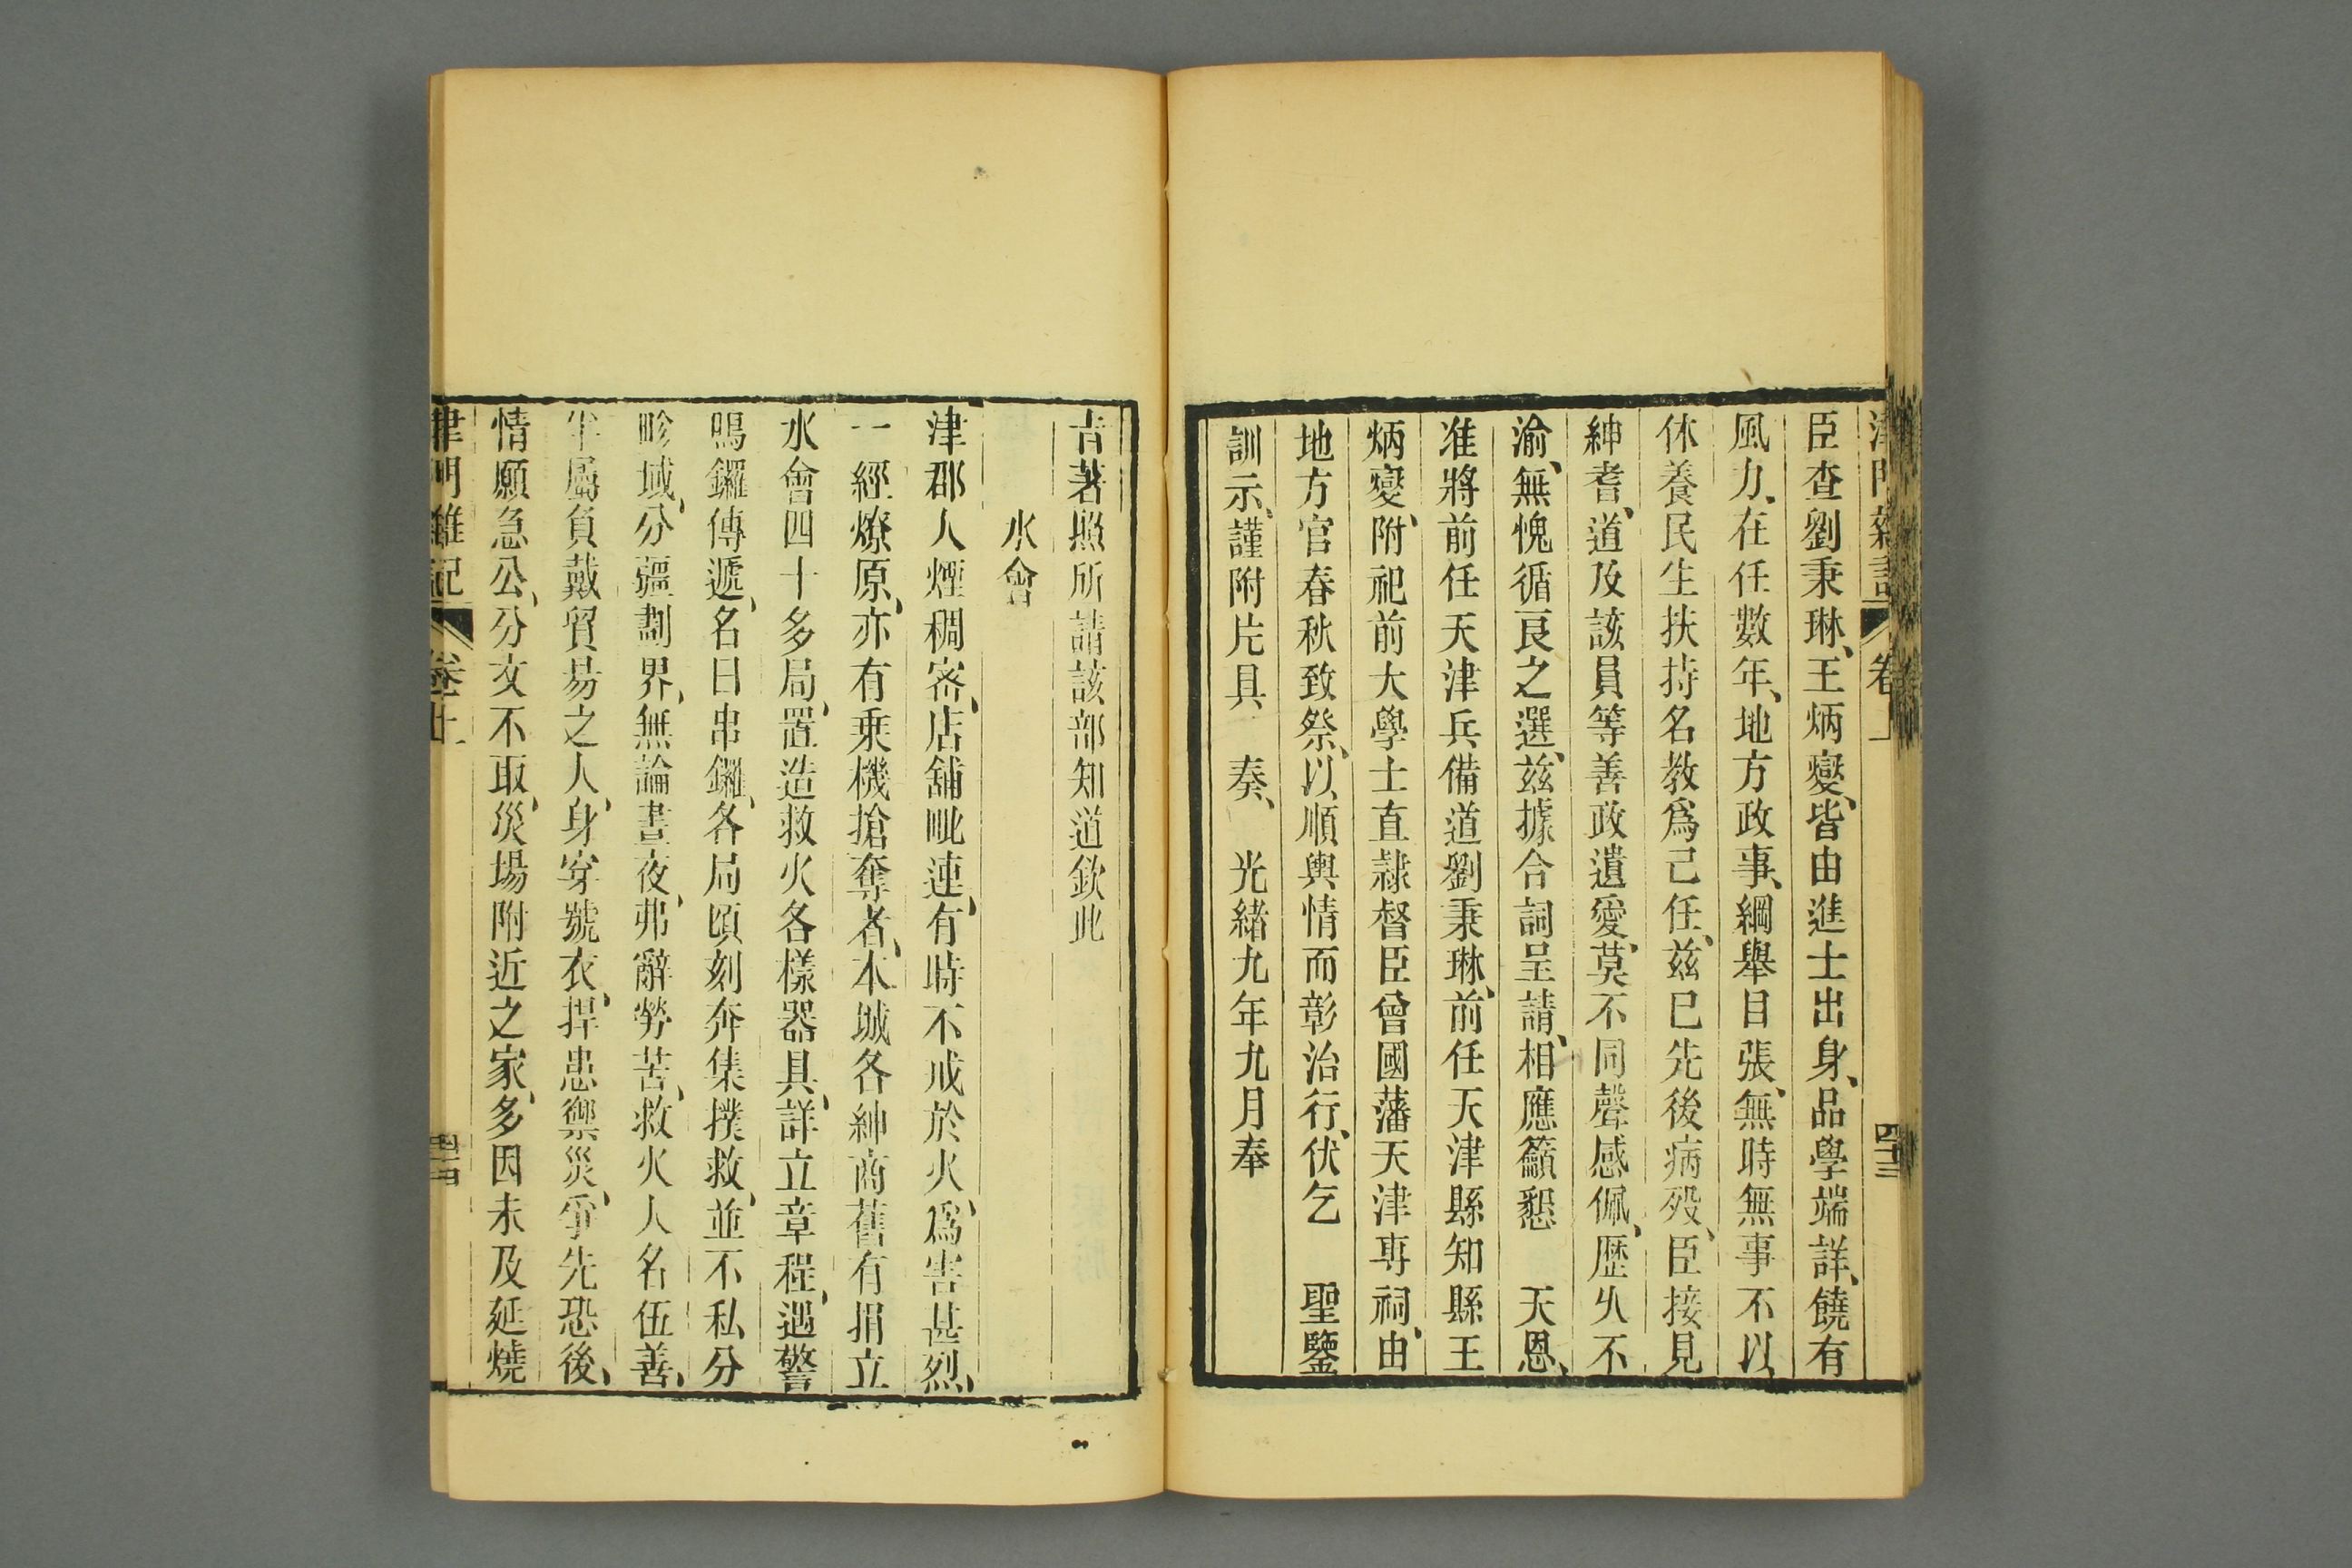 臣查劉秉琳、王炳燮、皆由進士出身、品學端詳、饒有
風力、在任數年、地方政事、綱舉目張、無時無事不以
休養民生扶持名教爲己任、茲已先後病殁、臣接見
紳耆、道及該員等善政遺愛、莫不同聲感佩、歷久不
渝、無愧循良之選、茲據合詞呈請、相應籲懇　天恩、
准將前任天津兵備道劉秉琳、前任天津縣知縣王
炳燮、附祀前大學士直隸督臣曾國藩天津專祠、由
地方官春秋致祭、以順輿情而彰治行、伏乞　聖鑒
訓示、謹附片具　奏、　光緒九年九月奉
旨著照所請該部知道欽此
水會
津郡人煙稠密、店舖毗連、有時不戒於火、爲害甚烈、
一經燎原、亦有乘機搶奪者、本城各紳商舊有捐立
水會四十多局、置造救火各樣器具、詳立章程、遇警
鳴鑼傳遞、名曰串鑼、各局頃刻奔集撲救、並不私分
畛域、分疆劃界、無論晝夜、弗辭勞苦、救火人名伍善、
半屬負戴貿易之人、身穿號衣、捍患禦災、爭先恐後、
情願急公、分文不取、災場附近之家、多因未及延燒
津門雜記　卷上